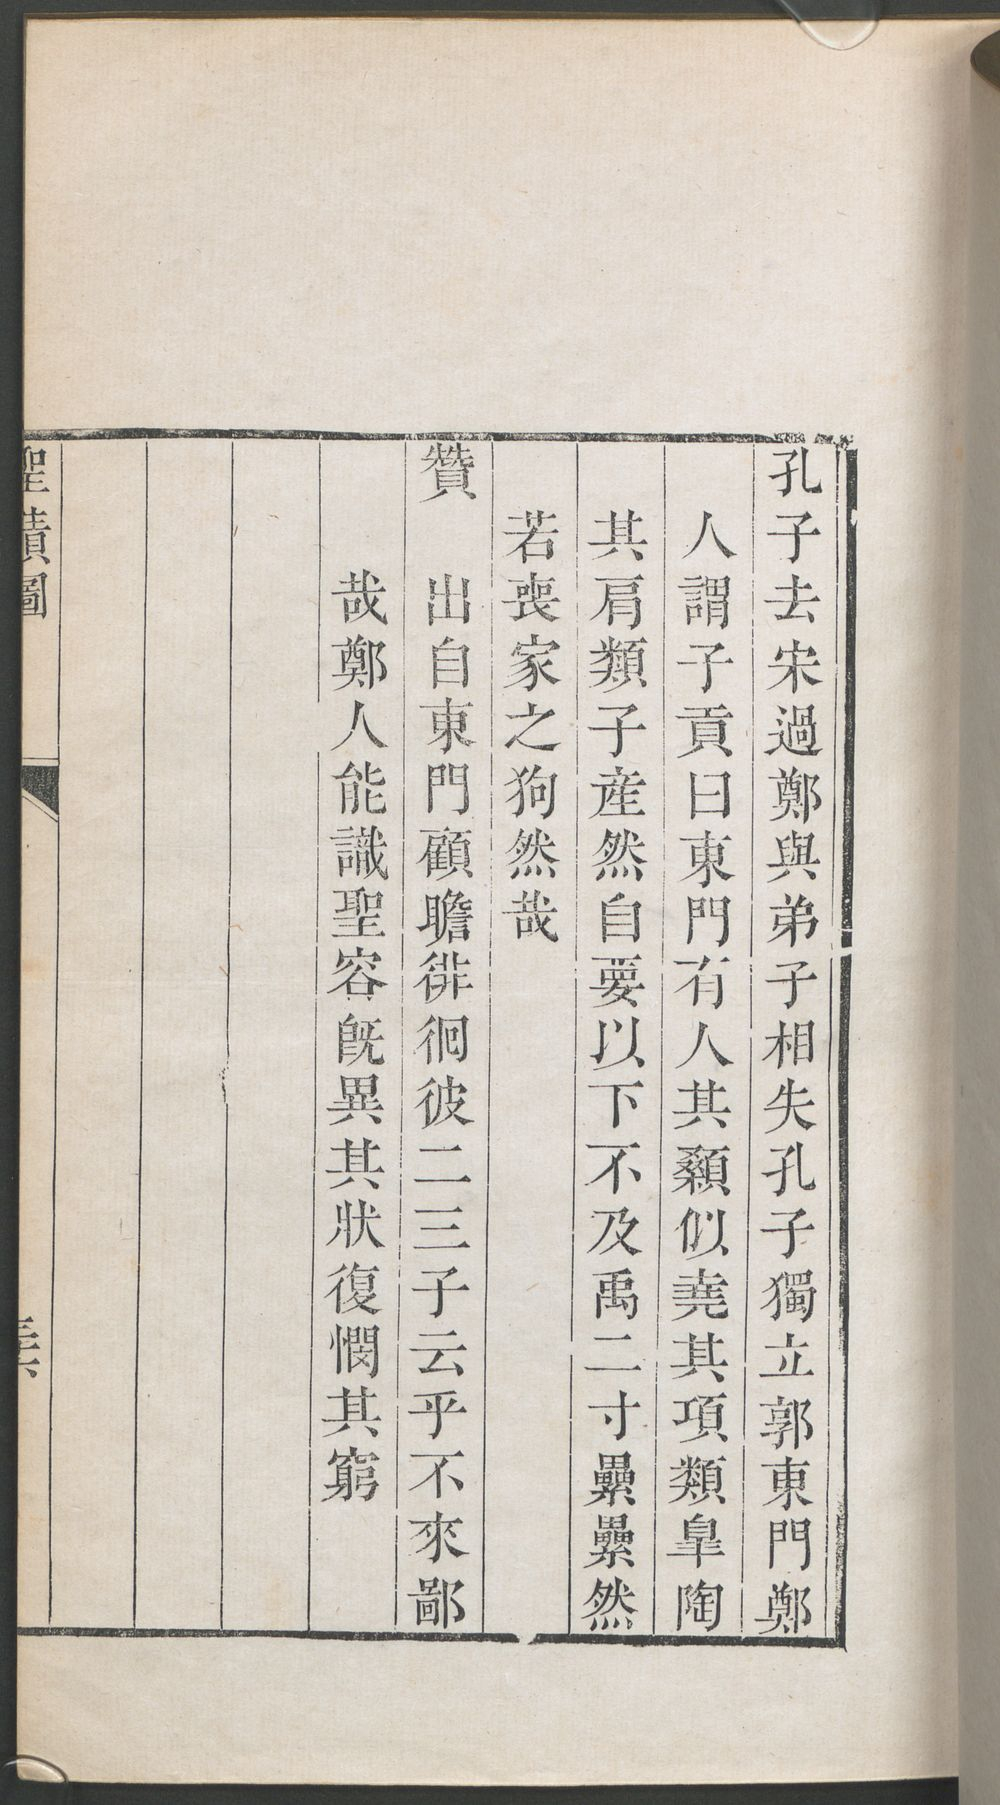 孔子去宋過鄭與弟子相失孔子獨立郭東門鄭
人謂子貢曰東門有人其顙似堯其項類皐陶
其肩類子產然自要以下不及禹二寸纍纍然
若喪家之狗然哉
贊 出自東門顧瞻徘徊彼二三子云乎不來鄙
哉鄭人能識聖容旣異其狀復憫其窮
聖蹟圖